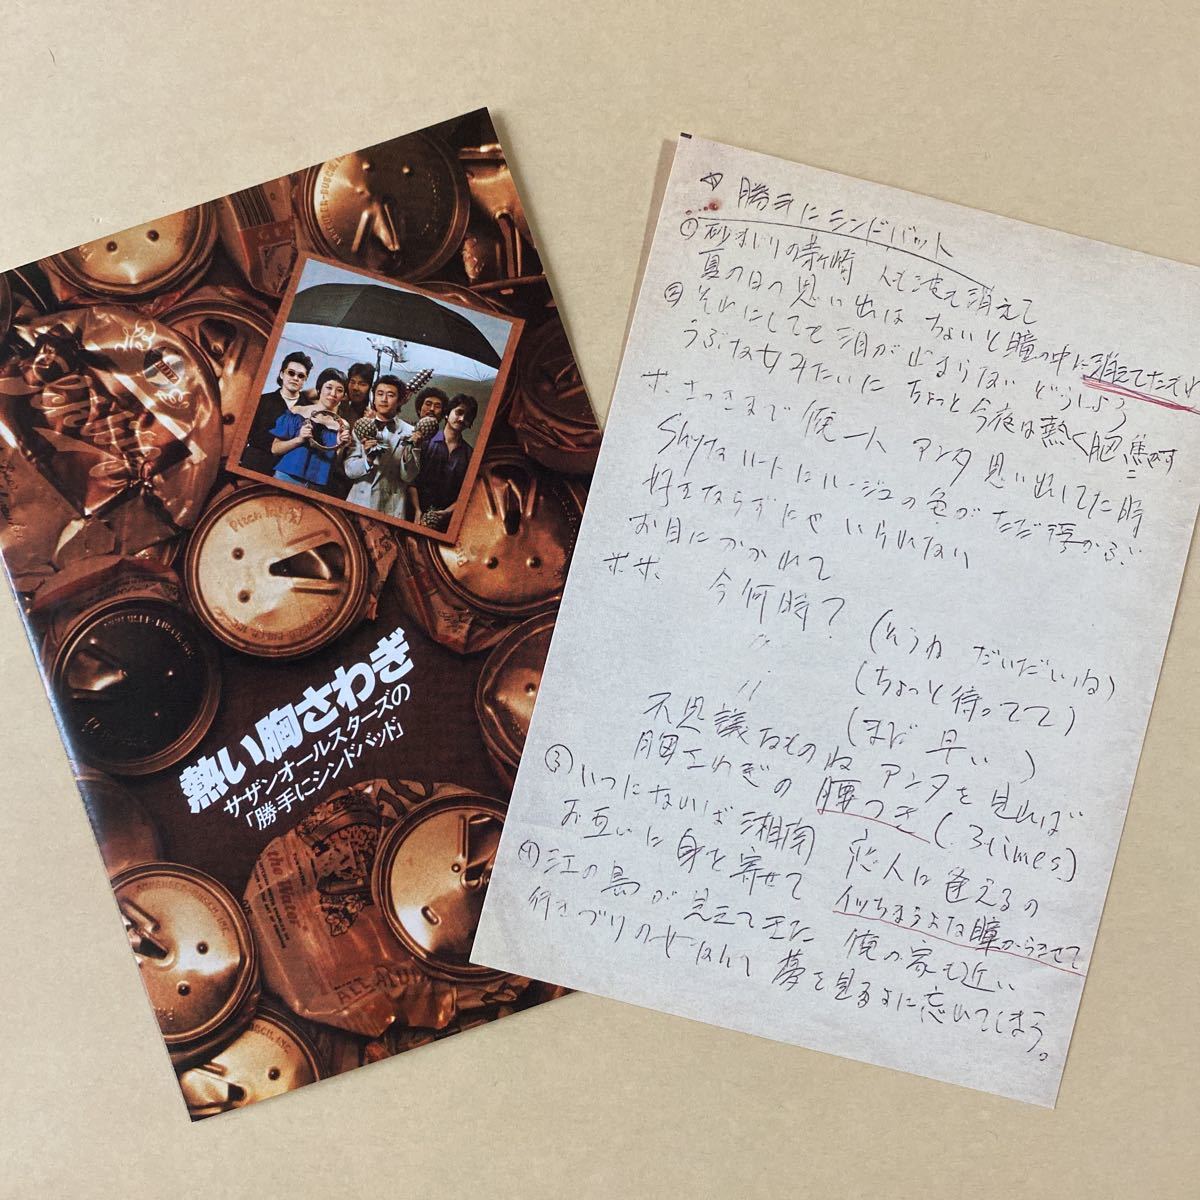 熱い胸さわぎ
サザンオールスターズの
「勝手にシンドバッド」
the Water
ALL ALUM
勝手にシンドバット
① 砂まじりの茅ヶ崎 人も波も消えて
夏の日の思い出は ちょいと瞳の中に消えてたそれ
② それにしても泪が止まらない どうしよう
うぶな女みたいに ちょっと今夜は熱く胸焦がす
さっきまで俺一人 アンタ思い出してた時
Shyなハートにルージュの色がただ浮かぶ
好きならずにゃいられない
お目にかかれて
今何時? (そうね だいたいね)
〃 (ちょっと待ってて)
〃 (まだ早い)
不思議なものね アンタを見れば
胸さわぎの腰つき (3times)
③ いつになれば湘南 恋人に逢えるの
お互いに身を寄せて イッちまうよな瞳からませて
④ 江の島が見えてきた 俺の家も近い
行きづりの女なんて 夢を見るよに忘れてしまう。